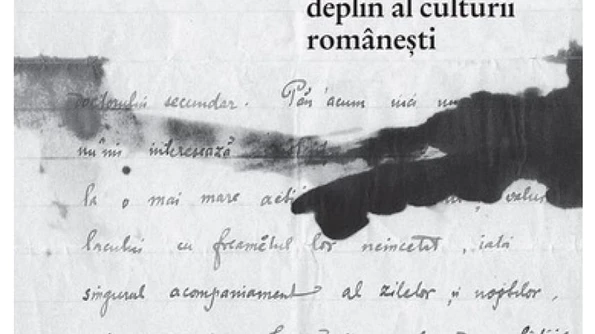 deplin al culturii
românești
doctorului secundar. Păn'acum nici
nu'mi interesează
la o mai mare
lacului cu freamătul lor neincetat, iată
singurul acompaniament al zilelor și nopților,